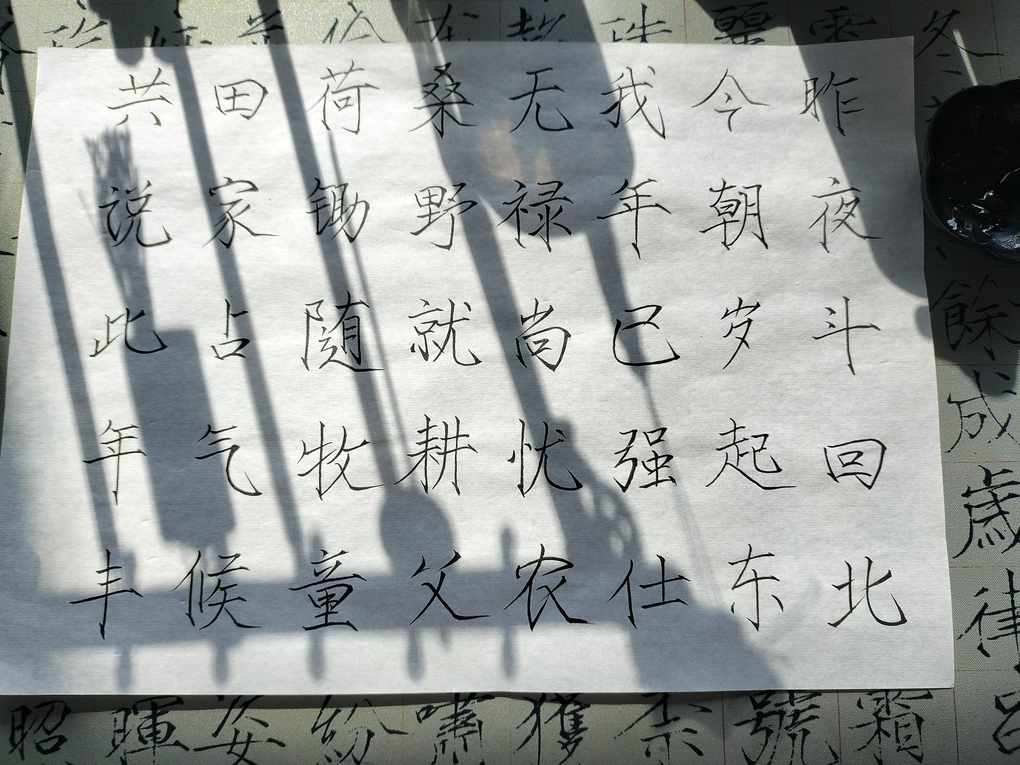 冬餘成歲律呂
昨夜斗回北
今朝岁起东
我年已强仕
无禄尚忧农
桑野就耕父
荷锄随牧童
田家占气候
共说此年丰
霜
號
柰
獲
嘯
紛
姿
暉
昭